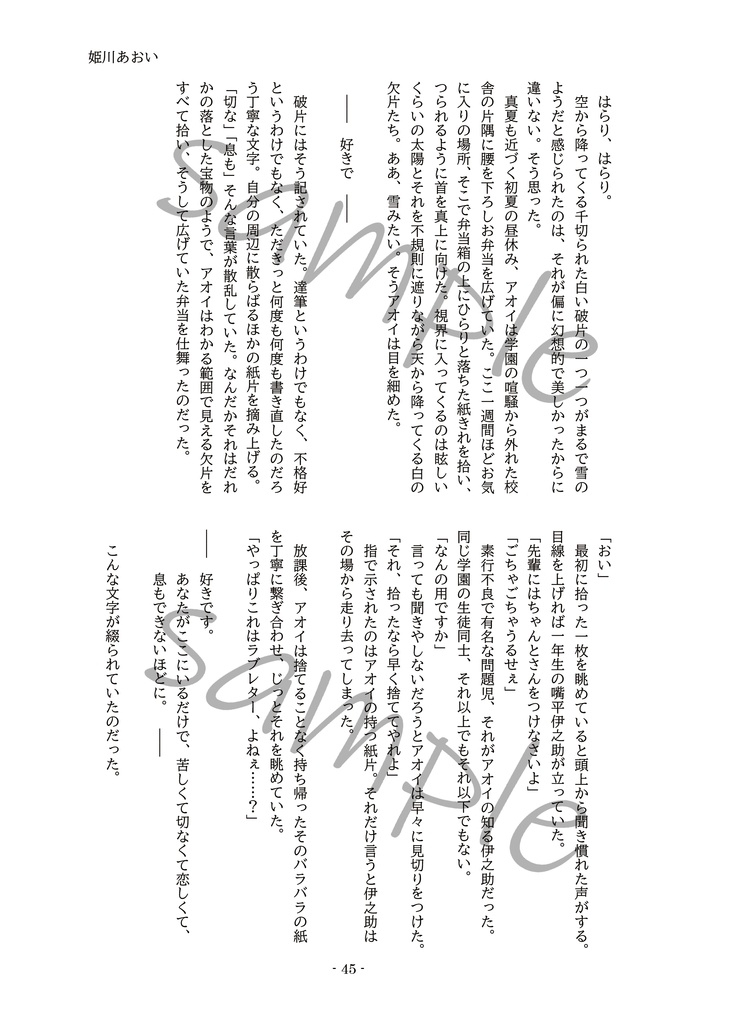 姫川あおい
はらり、はらり。
空から降ってくる千切られた白い破片の一つ一つがまるで雪の
ようだと感じられたのは、それが偏に幻想的で美しかったからに
違いない。そう思った。
真夏も近づく初夏の昼休み、アオイは学園の喧騒から外れた校
舎の片隅に腰を下ろしお弁当を広げていた。ここ一週間ほどお気
に入りの場所、そこで弁当箱の上にひらりと落ちた紙きれを拾い、
つられるように首を真上に向けた。視界に入ってくるのは眩しい
くらいの太陽とそれを不規則に遮りながら天から降ってくる白の
欠片たち。ああ、雪みたい。そうアオイは目を細めた。
―― 好きで ――
破片にはそう記されていた。達筆というわけでもなく、不格好
というわけでもなく、ただきっと何度も何度も書き直したのだろ
う丁寧な文字。自分の周辺に散らばるほかの紙片を摘み上げる。
「切な」「息も」そんな言葉が散乱していた。なんだかそれはだれ
かの落とした宝物のようで、アオイはわかる範囲で見える欠片を
すべて拾い、そうして広げていた弁当を仕舞ったのだった。
「おい」
最初に拾った一枚を眺めていると頭上から聞き慣れた声がする。
目線を上げれば一年生の嘴平伊之助が立っていた。
「先輩にはちゃんとさんをつけなさいよ」
「ごちゃごちゃうるせぇ」
素行不良で有名な問題児、それがアオイの知る伊之助だった。
同じ学園の生徒同士、それ以上でもそれ以下でもない。
「なんの用ですか」
言っても聞きやしないだろうとアオイは早々に見切りをつけた。
「それ、拾ったなら早く捨ててやれよ」
指で示されたのはアオイの持つ紙片。それだけ言うと伊之助は
その場から走り去ってしまった。
放課後、アオイは捨てることなく持ち帰ったそのバラバラの紙
を丁寧に繋ぎ合わせ、じっとそれを眺めていた。
「やっぱりこれはラブレター、よねぇ……？」
―― 好きです。
あなたがここにいるだけで、苦しくて切なくて恋しくて、
息もできないほどに。 ――
こんな文字が綴られていたのだった。
- 45 -
sample
sample